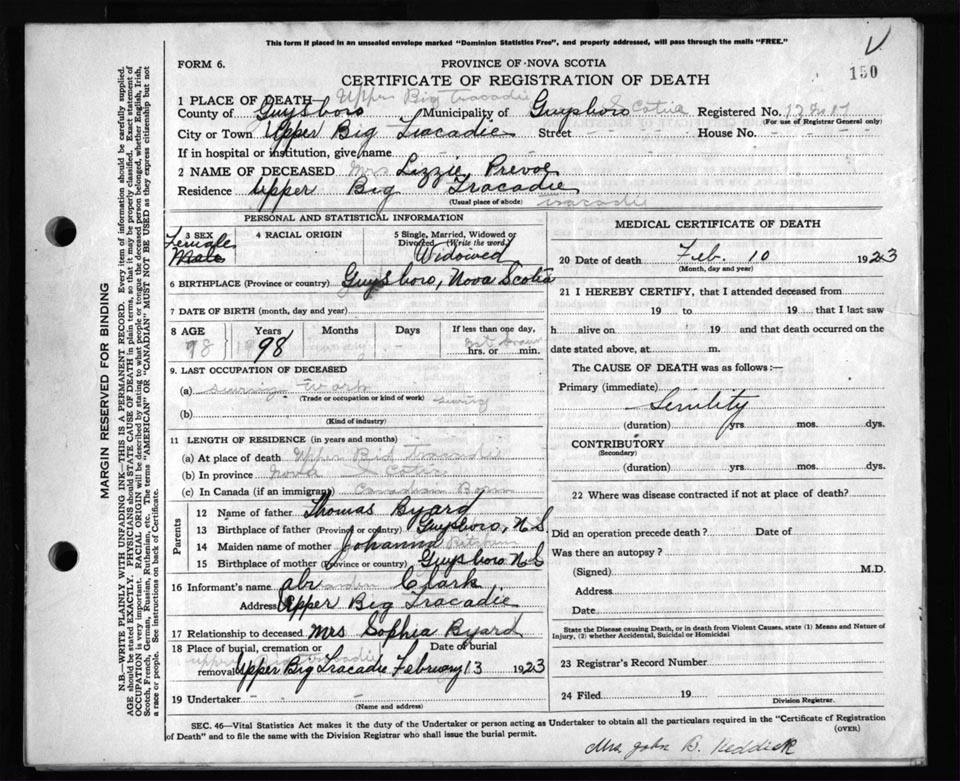 This form if placed in an unsealed envelope marked "Dominion Statistics Free", and properly addressed, will pass through the mails "FREE."
V
FORM 6.
PROVINCE OF NOVA SCOTIA
150
CERTIFICATE OF REGISTRATION OF DEATH
1 PLACE OF DEATH Upper Big Tracadie
County of Guysboro Municipality of Guysboro Scotia Registered No.
(For use of Registrar General only)
City or Town Upper Big Tracadie Street House No.
If in hospital or institution, give name
2 NAME OF DECEASED Mrs Lizzie Prevoe
Residence Upper Big Tracadie
(Usual place of abode) Tracadie
PERSONAL AND STATISTICAL INFORMATION
3 SEX Female Male
4 RACIAL ORIGIN
5 Single, Married, Widowed or Divorced (Write the word) Widowed
6 BIRTHPLACE (Province or country) Guysboro, Nova Scotia
7 DATE OF BIRTH (month, day and year)
8 AGE Years Months Days If less than one day,
98 98 hrs. or min.
9. LAST OCCUPATION OF DECEASED
(a) sewing work
(Trade or occupation or kind of work) sewing
(b)
(Kind of industry)
11 LENGTH OF RESIDENCE (in years and months)
(a) At place of death Upper Big Tracadie
(b) In province Nova Scotia
(c) In Canada (if an immigrant) Canadian Born
Parents
12 Name of father Thomas Byard
13 Birthplace of father (Province or country) Guysboro, N S
14 Maiden name of mother Johanna
15 Birthplace of mother (Province or country) Guysboro N S
16 Informant's name Clark
Address Upper Big Tracadie
17 Relationship to deceased Mrs Sophia Byard
18 Place of burial, cremation or removal Date of burial
Upper Big Tracadie February 13 1923
19 Undertaker
(Name and address)
MEDICAL CERTIFICATE OF DEATH
20 Date of death Feb. 10 1923
(Month, day and year)
21 I HEREBY CERTIFY, that I attended deceased from
19 to 19 that I last saw
h alive on 19 and that death occurred on the
date stated above, at m.
The CAUSE OF DEATH was as follows:—
Primary (immediate)
Senility
(duration) yrs. mos. dys.
CONTRIBUTORY
(Secondary)
(duration) yrs. mos. dys.
22 Where was disease contracted if not at place of death?
Did an operation precede death? Date of
Was there an autopsy?
(Signed) M.D.
Address
Date
State the Disease causing Death, or in death from Violent Causes, state (1) Means and Nature of
Injury, (2) whether Accidental, Suicidal or Homicidal
23 Registrar's Record Number
24 Filed 19
Division Registrar.
SEC. 46—Vital Statistics Act makes it the duty of the Undertaker or person acting as Undertaker to obtain all the particulars required in the "Certificate of Registration
of Death" and to file the same with the Division Registrar who shall issue the burial permit.
(OVER)
Mrs. John B. Reddick
MARGIN RESERVED FOR BINDING
N.B.—WRITE PLAINLY WITH UNFADING INK—THIS IS A PERMANENT RECORD. Every item of information should be carefully supplied.
AGE should be stated EXACTLY. PHYSICIANS should STATE CAUSE OF DEATH in plain terms, so that it may be properly classified. Exact statement of
OCCUPATION is very important. RACIAL ORIGIN will be described by stating to what people or tongue the deceased person belonged, whether English, Irish,
Scotch, French, German, Russian, Ruthenian, etc. The terms "AMERICAN" OR "CANADIAN" MUST NOT BE USED as they express citizenship but not
a race or people. See instructions on back of Certificate.